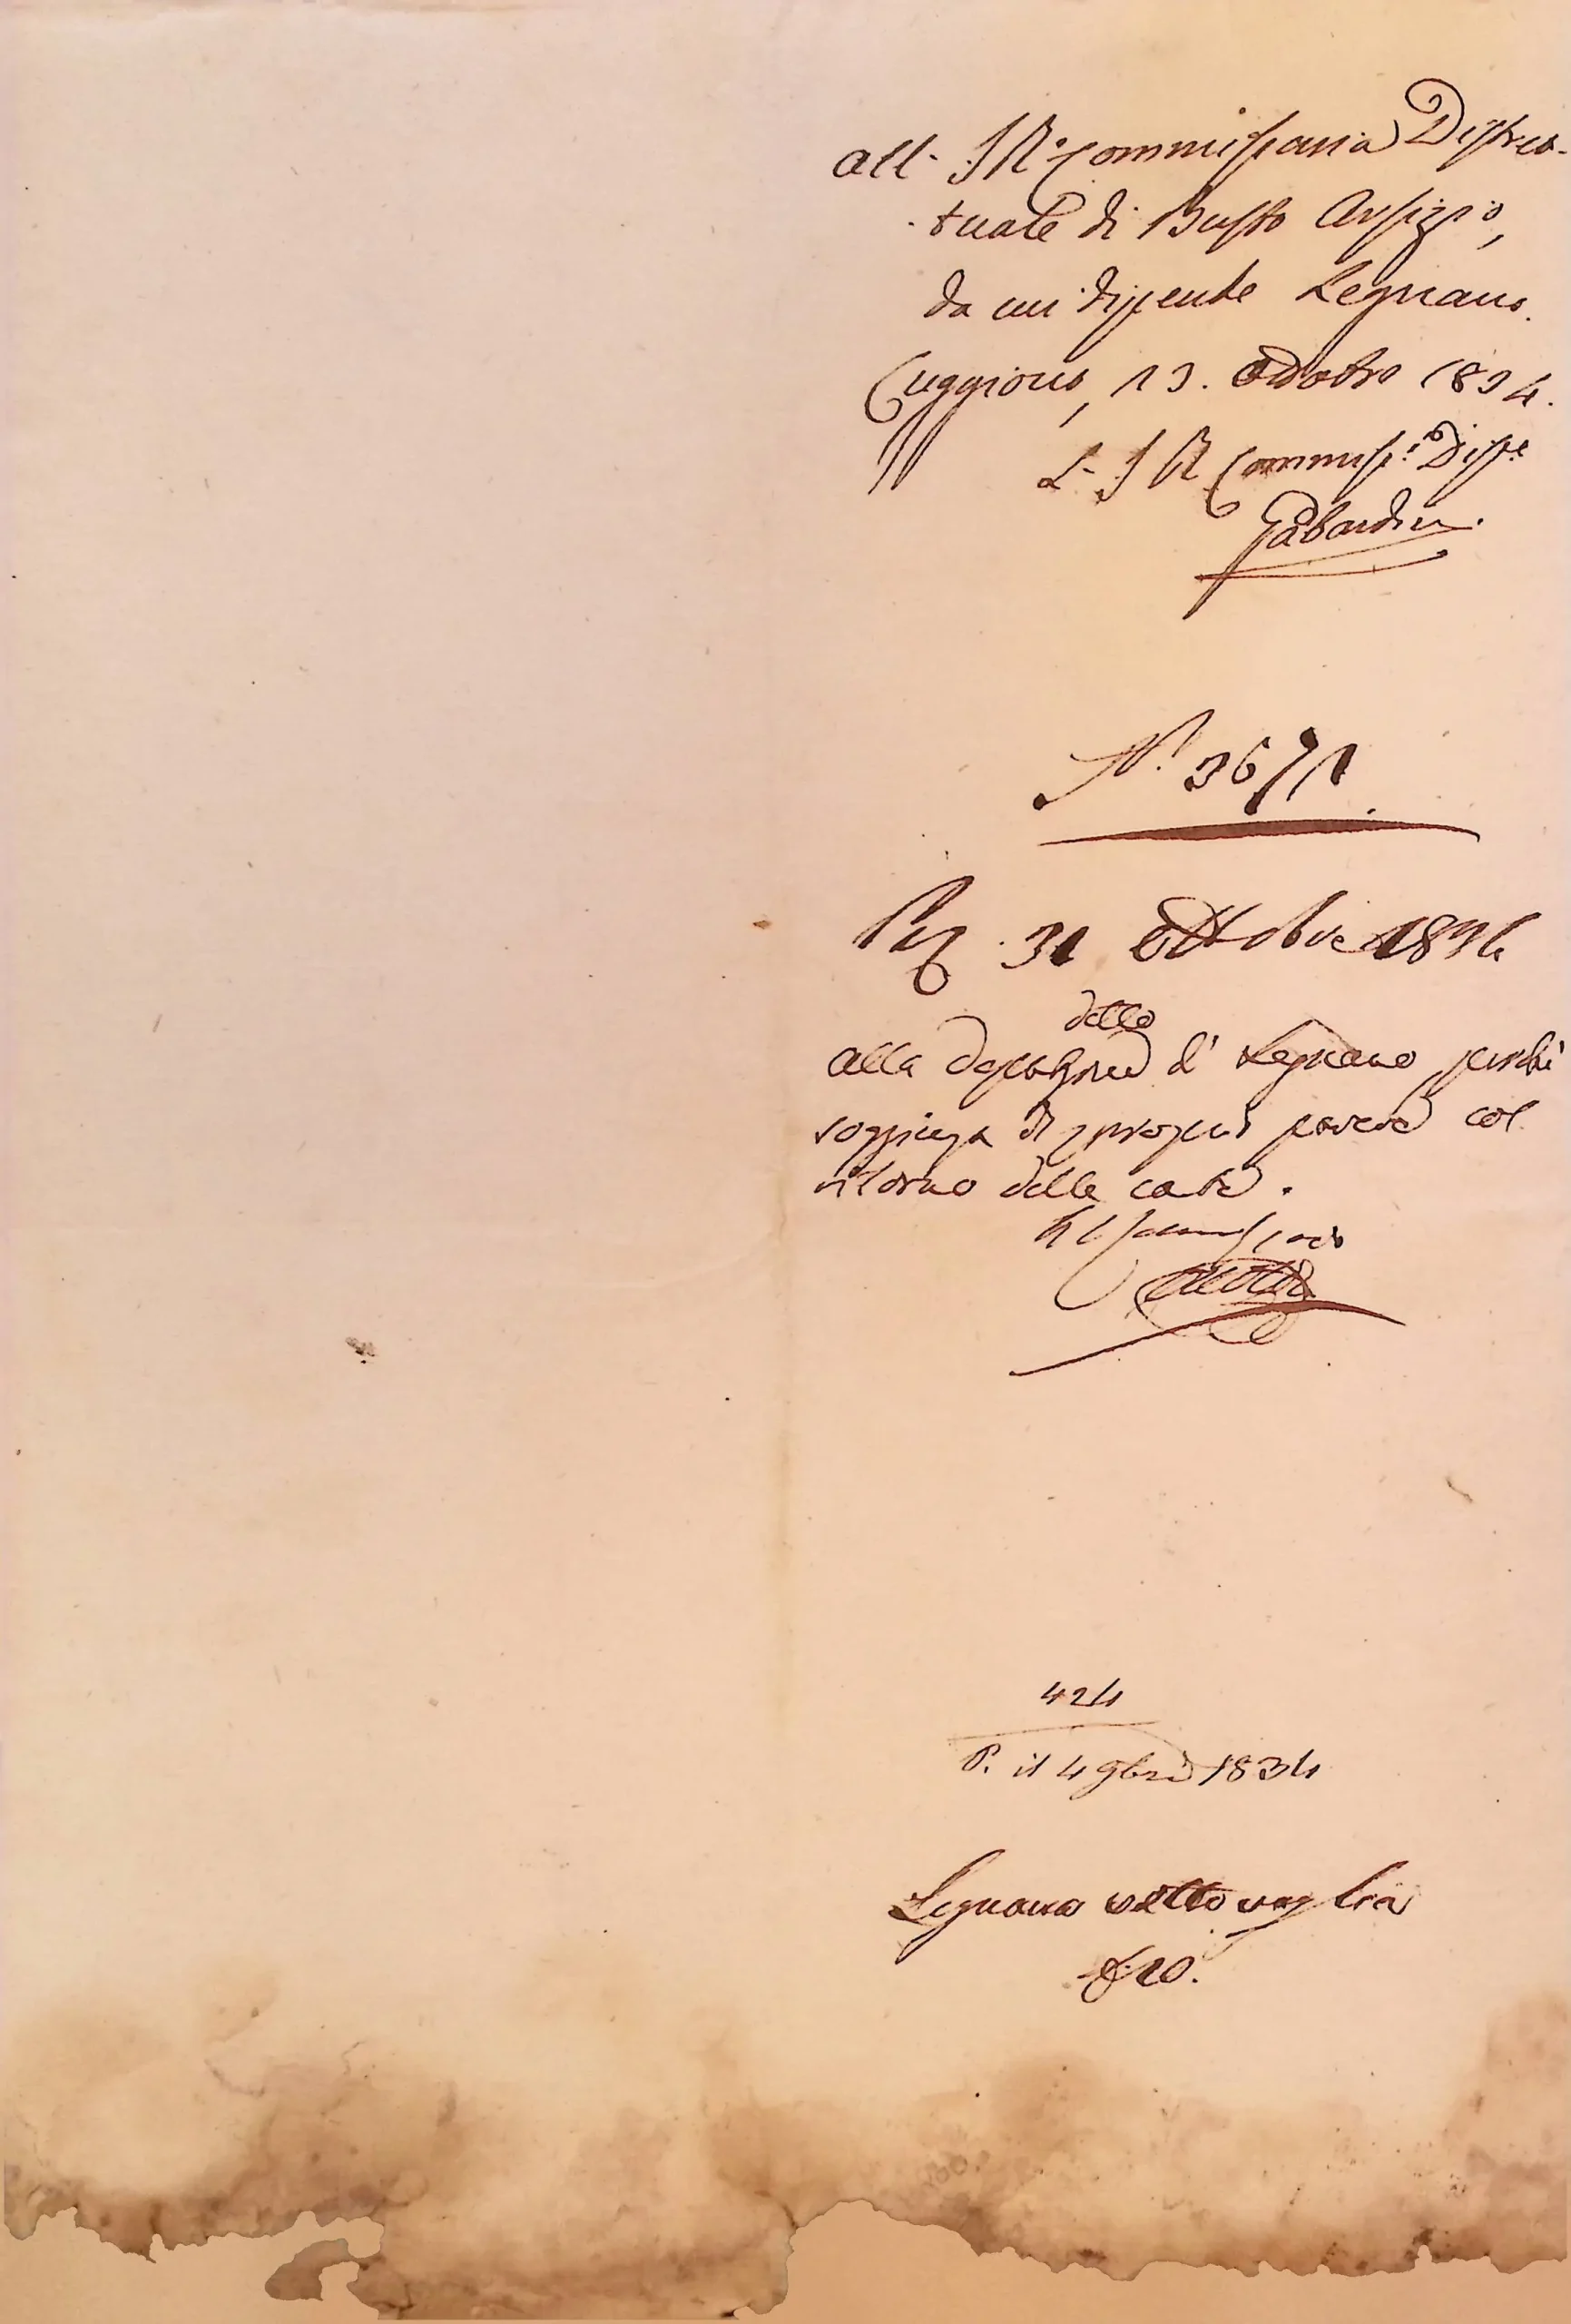 All' I R Commissaria Distret-
tuale di Busto Arsizio,
da cui dipende Legnano.
Cuggiono, 13. Ottobre 1834.
L' I R Commiss.º Diss.e
Gabardin.
N.º 3671
31 Ottobre 1834
detto
alla Deputazione d' Legnano perchè
soggiunga di proprio parere col
ritorno delle carte.
424
P. il 4 9bre 1834
Legnano sotto
£ 20.